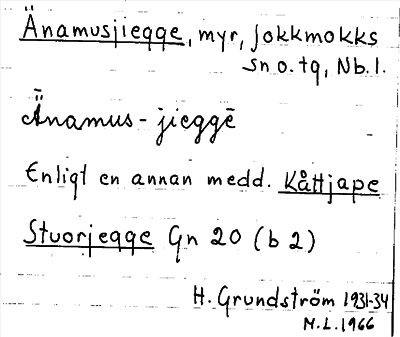 Änamusjiegge, myr, Jokkmokks
sn o. tg, Nb. l.
Änamus - jieggē
Enligt en annan medd. Kåttjape
Stuorjegge Gn 20 (b 2)
H. Grundström 1931-34
M.L. 1966